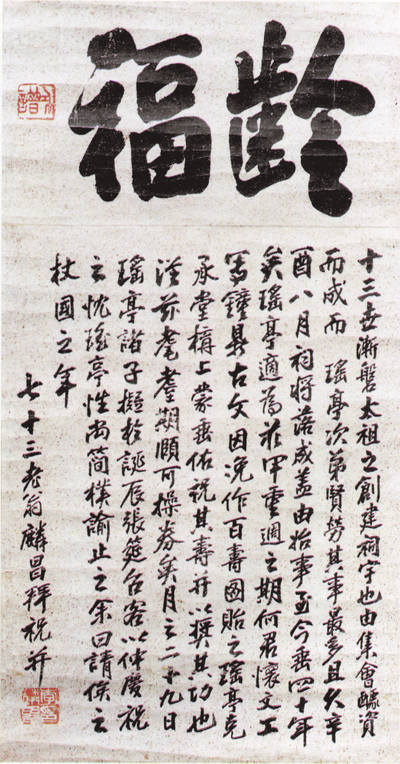 齡福
十三世漸磐太祖之創建祠宇也由集會醵資
而成而瑶亭次第賢勞其事最多且久辛
酉八月祠將落成蓋由始事至今垂四十年
矣瑶亭適為花甲重週之期何君懷文工
寫鐘鼎古文因浼作百壽圖貽之瑶亭克
承堂構上蒙垂佑祝其壽并以獎其功也
從兹耄耋期頤可操券矣月之二十九日
瑶亭諸子擬於誕辰張筵召客以伸慶祝
之忱瑶亭性尚簡樸諭止之余曰請俟之
杖國之年
七十三老翁麟昌拜祝并